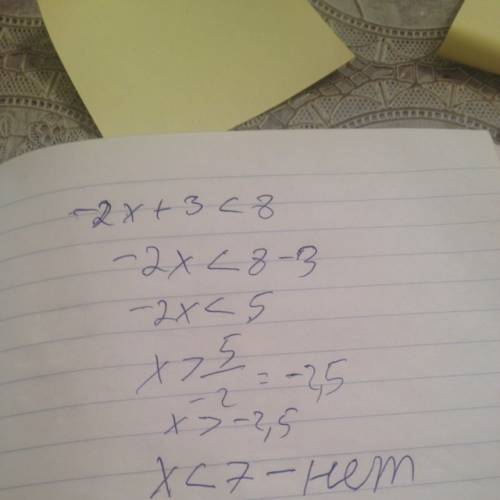 -2x+3<8
-2x<8-3
-2x<5
x>5/-2=-2,5
x>-2,5
x<7-нет